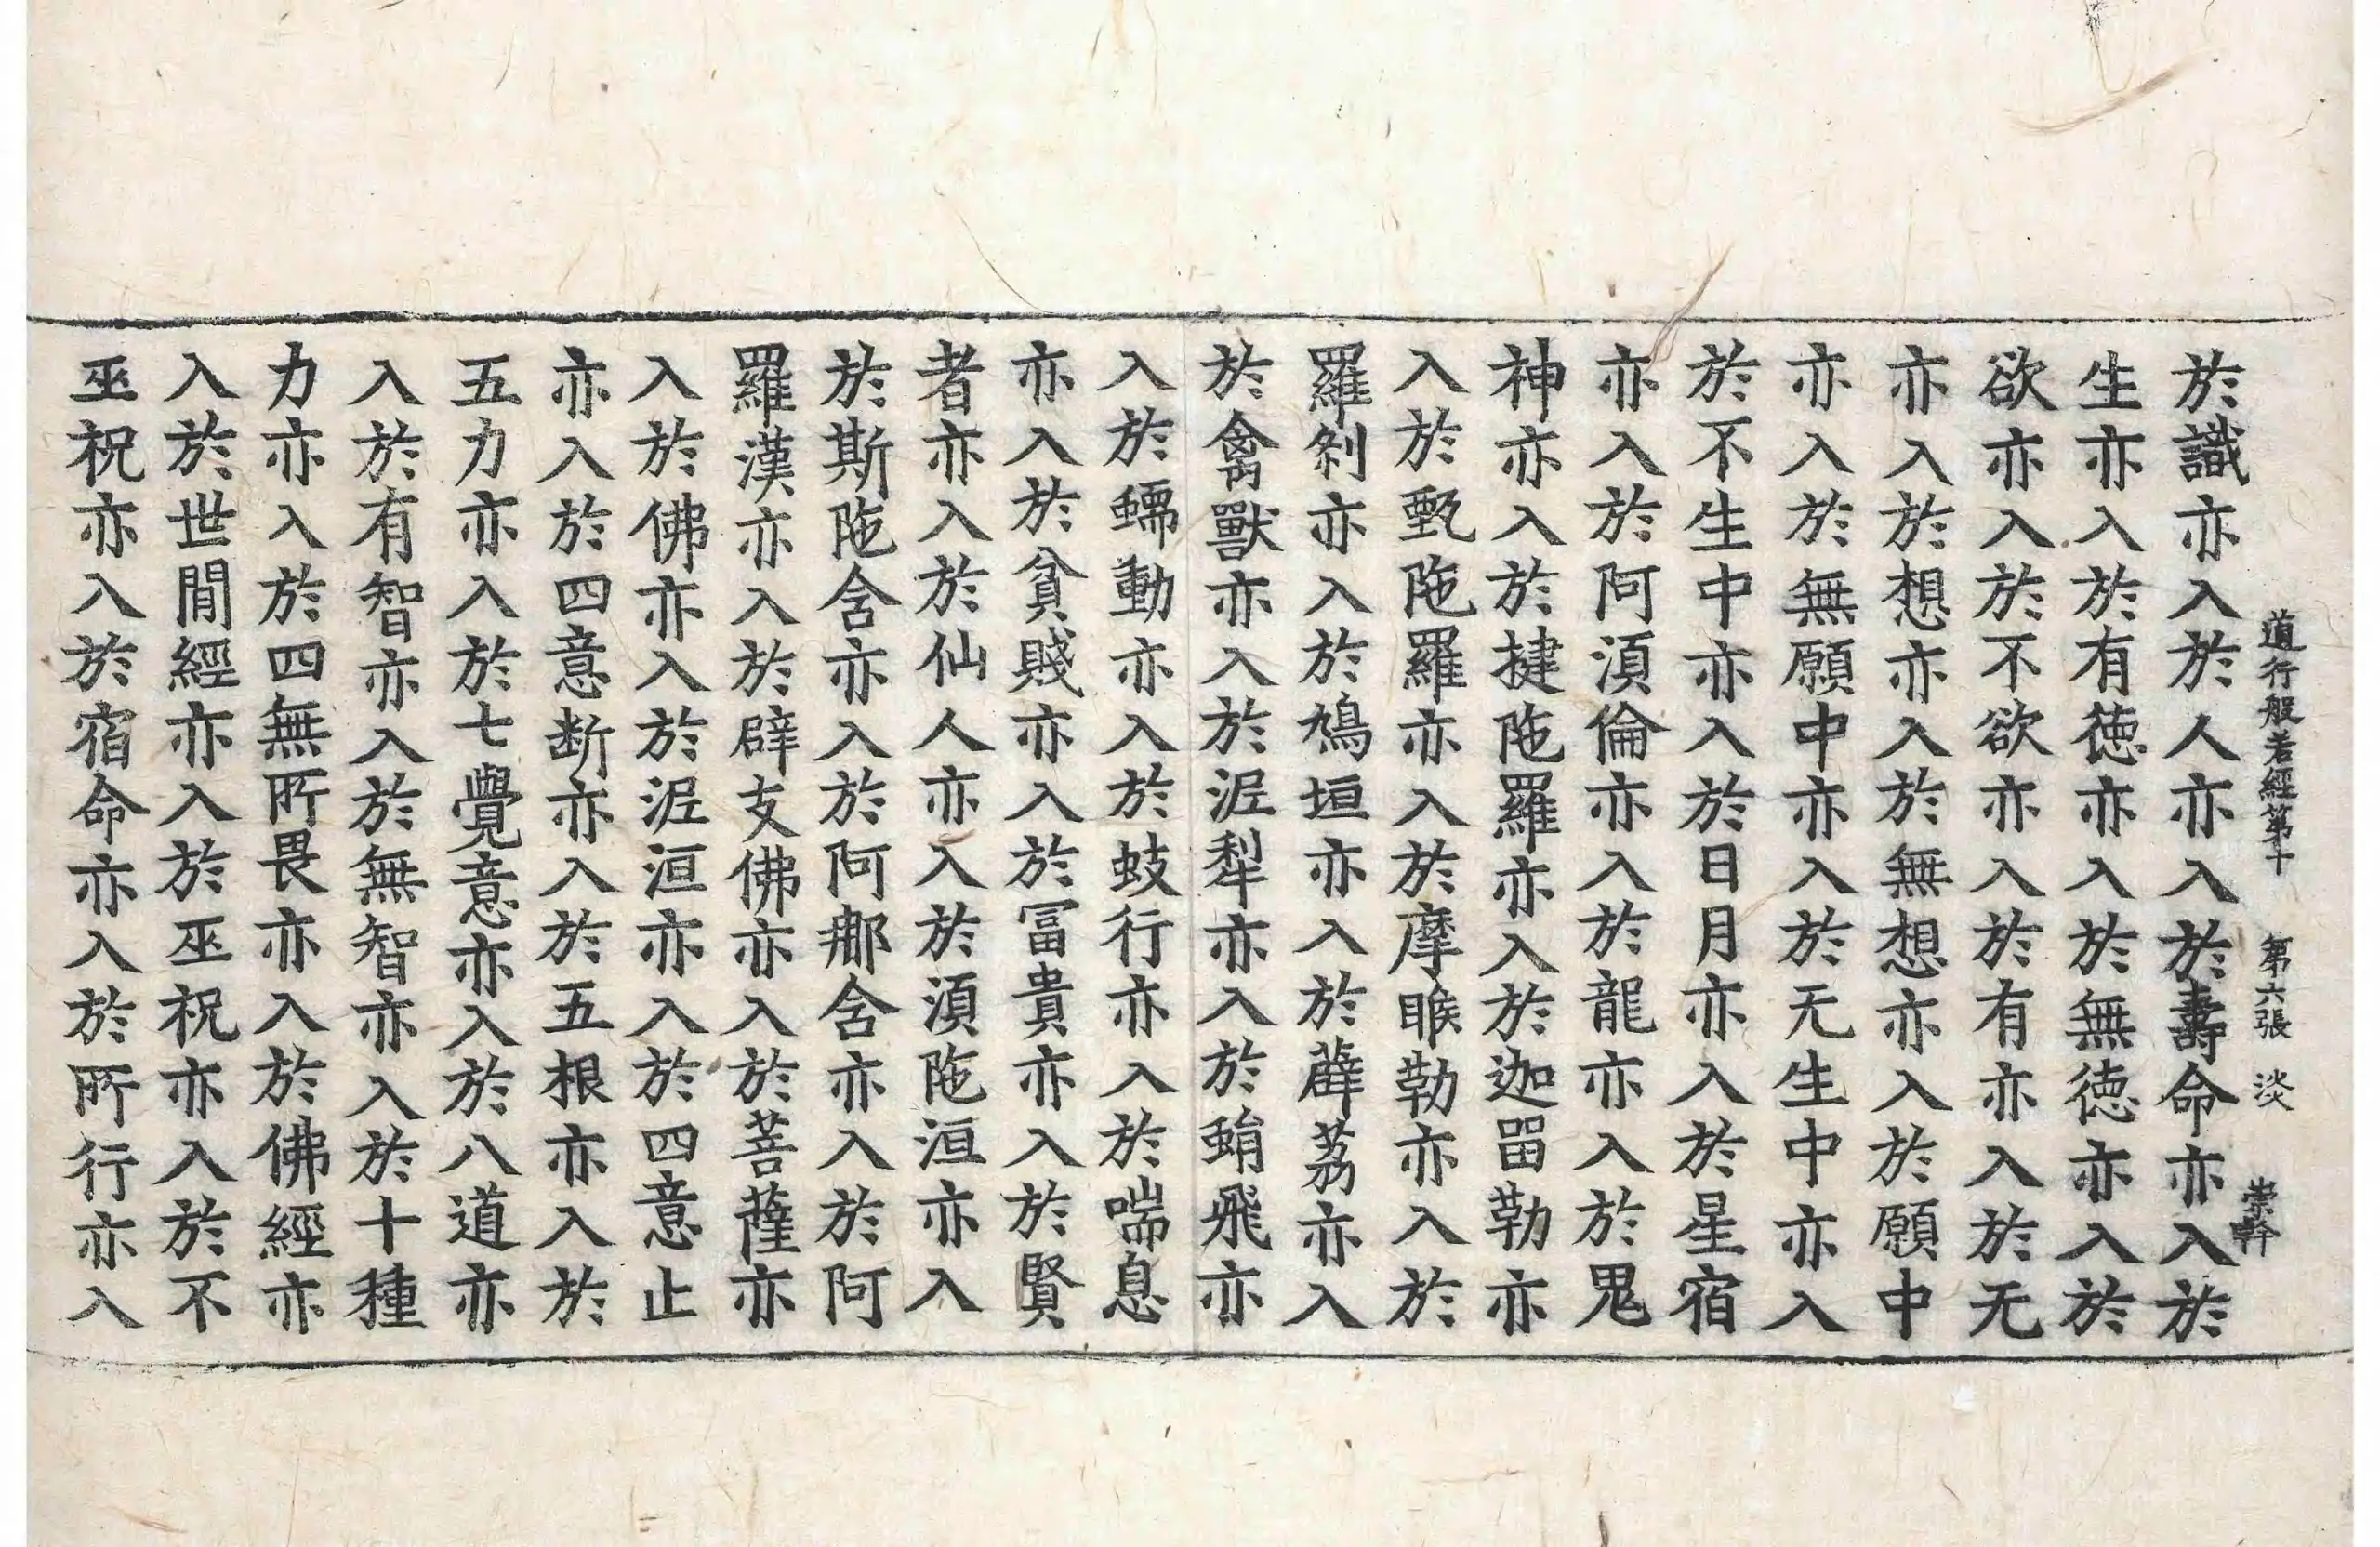 道行般若経第十　第六張　淡　崇幹
於識亦入於人亦入於壽命亦入於
生亦入於有徳亦入於無徳亦入於
欲亦入於不欲亦入於有亦入於无
亦入於想亦入於無想亦入於願中
亦入於無願中亦入於无生中亦入
於不生中亦入於日月亦入於星宿
亦入於阿湏倫亦入於龍亦入於鬼
神亦入於揵陁羅亦入於迦留勒亦
入於甄陁羅亦入於摩睺勒亦入於
羅刹亦入於鳩垣亦入於薜荔亦入
於禽獸亦入於泥犁亦入於蜎飛亦
入於蠕動亦入於蚑行亦入於喘息
亦入於貧賤亦入於冨貴亦入於賢
者亦入於仙人亦入於湏陁洹亦入
於斯陁含亦入於阿那含亦入於阿
羅漢亦入於辟支佛亦入於菩薩亦
入於佛亦入於泥洹亦入於四意止
亦入於四意断亦入於五根亦入於
五力亦入於七覺意亦入於八道亦
入於有智亦入於無智亦入於十種
力亦入於四無所畏亦入於佛經亦
入於世閒經亦入於巫祝亦入於不
巫祝亦入於宿命亦入於所行亦入